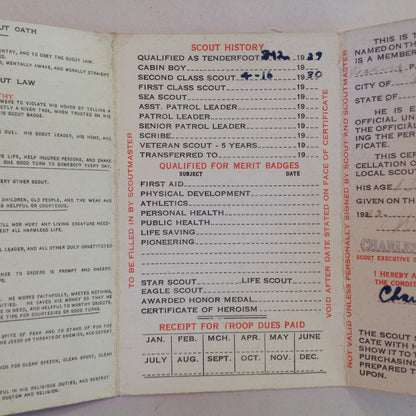 OUT OATH
UNTRY, AND TO OBEY THE SCOUT LAW.
S, MENTALLY AWAKE, AND MORALLY STRAIGHT
OUT LAW
THY
WERE TO VIOLATE HIS HONOR BY TELLING A
TLY A GIVEN TASK, WHEN TRUSTED ON HIS
HIS SCOUT BADGE.
DUE. HIS SCOUT LEADER, HIS HOME, AND
VE LIFE, HELP INJURED PERSONS, AND SHARE
ONE GOOD TURN TO SOMEBODY EVERY DAY.
VERY OTHER SCOUT.
CHILDREN, OLD PEOPLE, AND THE WEAK AND
HELPFUL OR COURTEOUS.
ILL NOR HURT ANY LIVING CREATURE NEED-
ECT ALL HARMLESS LIFE.
L LEADER, AND ALL OTHER DULY CONSTITUTED
ENCE TO ORDERS IS PROMPT AND CHEERY.
HIPS.
HE WORKS FAITHFULLY, WASTES NOTHING,
NITIES. HE SAVES HIS MONEY SO THAT HE
IN NEED, AND HELPFUL TO WORTHY OBJECTS.
E TIPS FOR COURTESIES OR GOOD TURNS.
SPITE OF FEAR AND TO STAND UP FOR THE
JEERS OR THREATS OF ENEMIES, AND DEFEAT
NDS FOR CLEAN SPEECH, CLEAN SPORT, CLEAN
D.
FUL IN HIS RELIGIOUS DUTIES, AND RESPECT
CUSTOM AND RELIGION.
TO BE FILLED IN BY SCOUTMASTER
SCOUT HISTORY
QUALIFIED AS TENDERFOOT 1929
CABIN BOY 19
SECOND CLASS SCOUT 4-16 1930
FIRST CLASS SCOUT 19
SEA SCOUT 19
ASST. PATROL LEADER 19
PATROL LEADER 19
SENIOR PATROL LEADER 19
SCRIBE 19
VETERAN SCOUT - 5 YEARS 19
TRANSFERRED TO 19
QUALIFIED FOR MERIT BADGES
SUBJECT DATE
FIRST AID
PHYSICAL DEVELOPMENT
ATHLETICS
PERSONAL HEALTH
PUBLIC HEALTH
LIFE SAVING
PIONEERING
STAR SCOUT LIFE SCOUT
EAGLE SCOUT
AWARDED HONOR MEDAL
CERTIFICATE OF HEROISM
RECEIPT FOR TROOP DUES PAID
JAN. FEB. MCH. APR. MAY JUNE
JULY AUG. SEPT. OCT. NOV. DEC.
VOID AFTER DATE STATED ON FACE OF CERTIFICATE
NOT VALID UNLESS PERSONALLY SIGNED BY SCOUT AND SCOUTMASTER
THIS IS T
NAMED ON THE
IS A MEMBER
CITY OF
STATE OF
HE IS
OFFICIAL UN
THE OFFICIAL
ING THE PER
FICATE.
THIS CERT
CELLATION OF
LOCAL SCOUT
HIS AGE
GIVEN ON THE
192
CHARLES
SCOUT EXECUTIVE O
I HEREBY A
THE CONDIT
THE SCOUT S
CATE WITH H
SHOW IT TO
THE PURCHAS
PREPARED T
UPON.